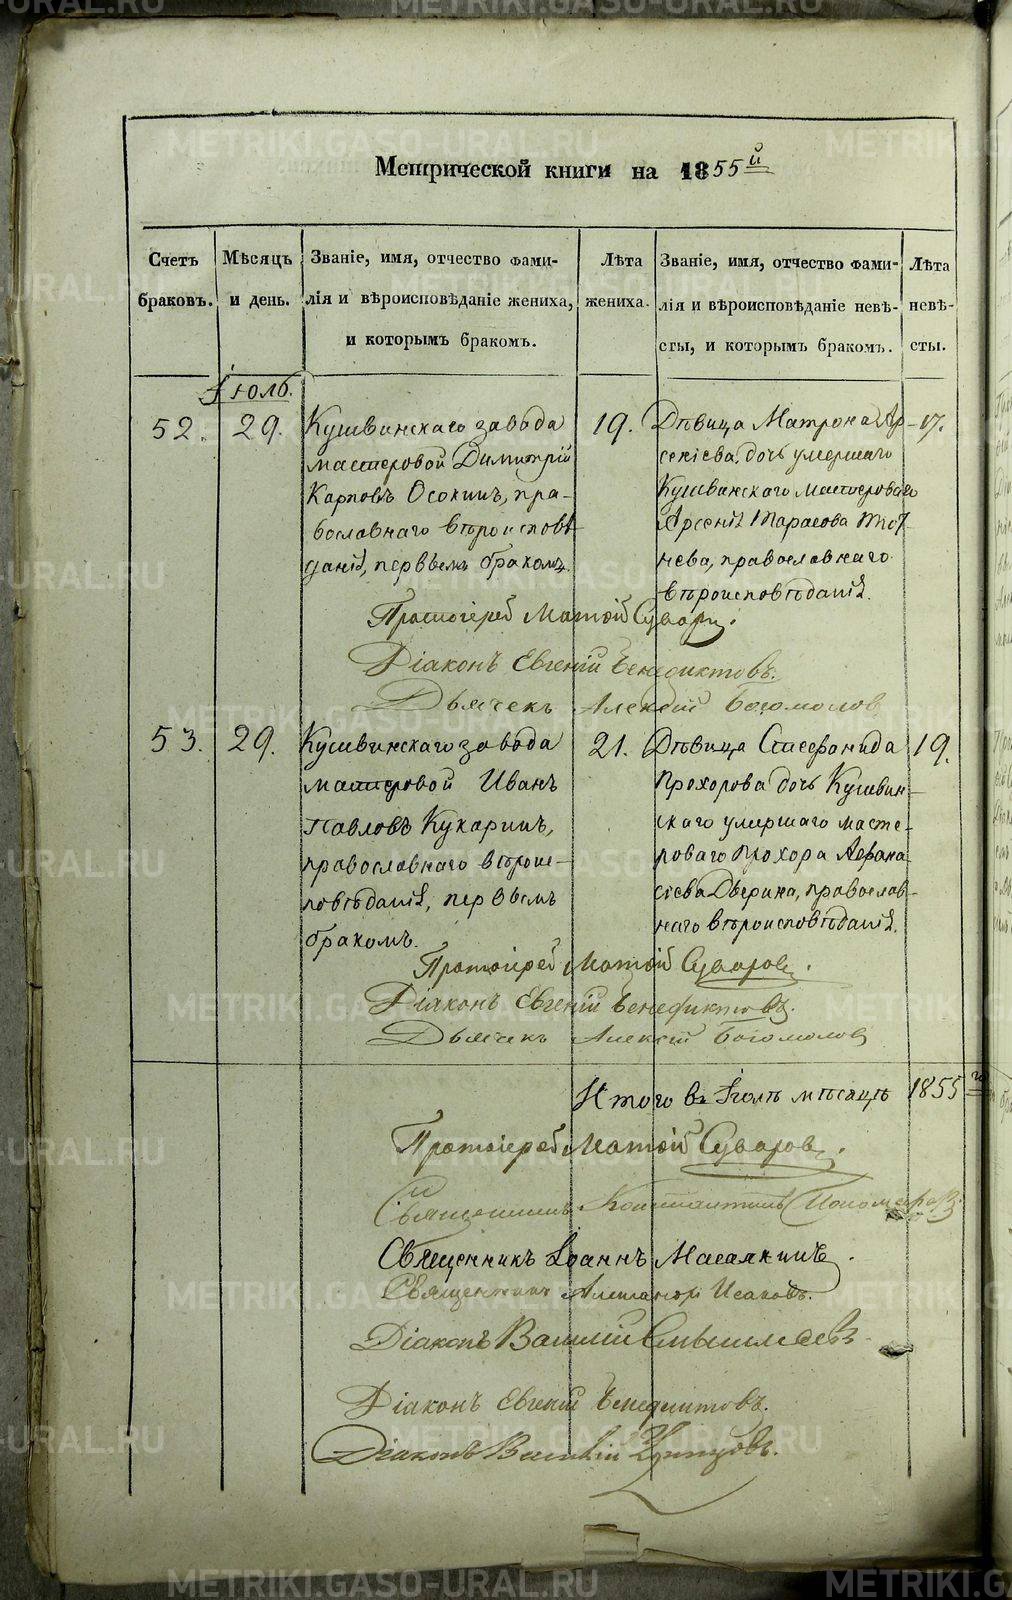 Метрической книги на 1855й
Счетъ браковъ.
Мѣсяцъ и день.
Званіе, имя, отчество фами-
лія и вѣроисповѣданіе жениха,
и которымъ бракомъ.
Лѣта жениха.
Званіе, имя, отчество фами-
лія и вѣроисповѣданіе невѣ-
сты, и которымъ бракомъ.
Лѣта невѣ-
сты.
Іюль.
52. 29.
Кушвинскаго завода
мастеровой Димитрій
Карповъ Осокинъ, пра-
вославнаго вѣроисповѣ-
данія, первымъ бракомъ.
19.
Дѣвица Матрона Ар-
сеніева, дочь умершаго
Кушвинскаго мастероваго
Арсенія Тарасова
нева, православнаго
вѣроисповѣданія.
17.
Протоіерей Матѳій Суворов.
Діаконъ Евгеній Бенедиктовъ.
Дьячекъ Алексій Богомолов
53. 29.
Кушвинскаго завода
мастеровой Иванъ
Павловъ Кукаринъ,
православнаго вѣроис-
повѣданія, первымъ
бракомъ.
21.
Дѣвица Стефанида
Прохорова дочь Кушвин-
скаго умершаго масте-
роваго Прохора Афана-
сіева Дверина, православ-
наго вѣроисповѣданія.
19.
Протоіерей Матѳій Суворовъ.
Діаконъ Евгеній Бенедиктовъ.
Дьячекъ Алексій Богомолов
Итого въ Іюлѣ мѣсяцѣ 1855го
Протоіерей Матѳій Суворовъ.
Священникъ Константинъ Пономаревъ.
Священникъ Іоаннъ Масалкинъ.
Священникъ Александръ Исаковъ.
Діаконъ Василій Смышляевъ.
Діаконъ Евгеній Бенедиктовъ.
Діаконъ Василій
METRIKI.GASO-URAL.RU